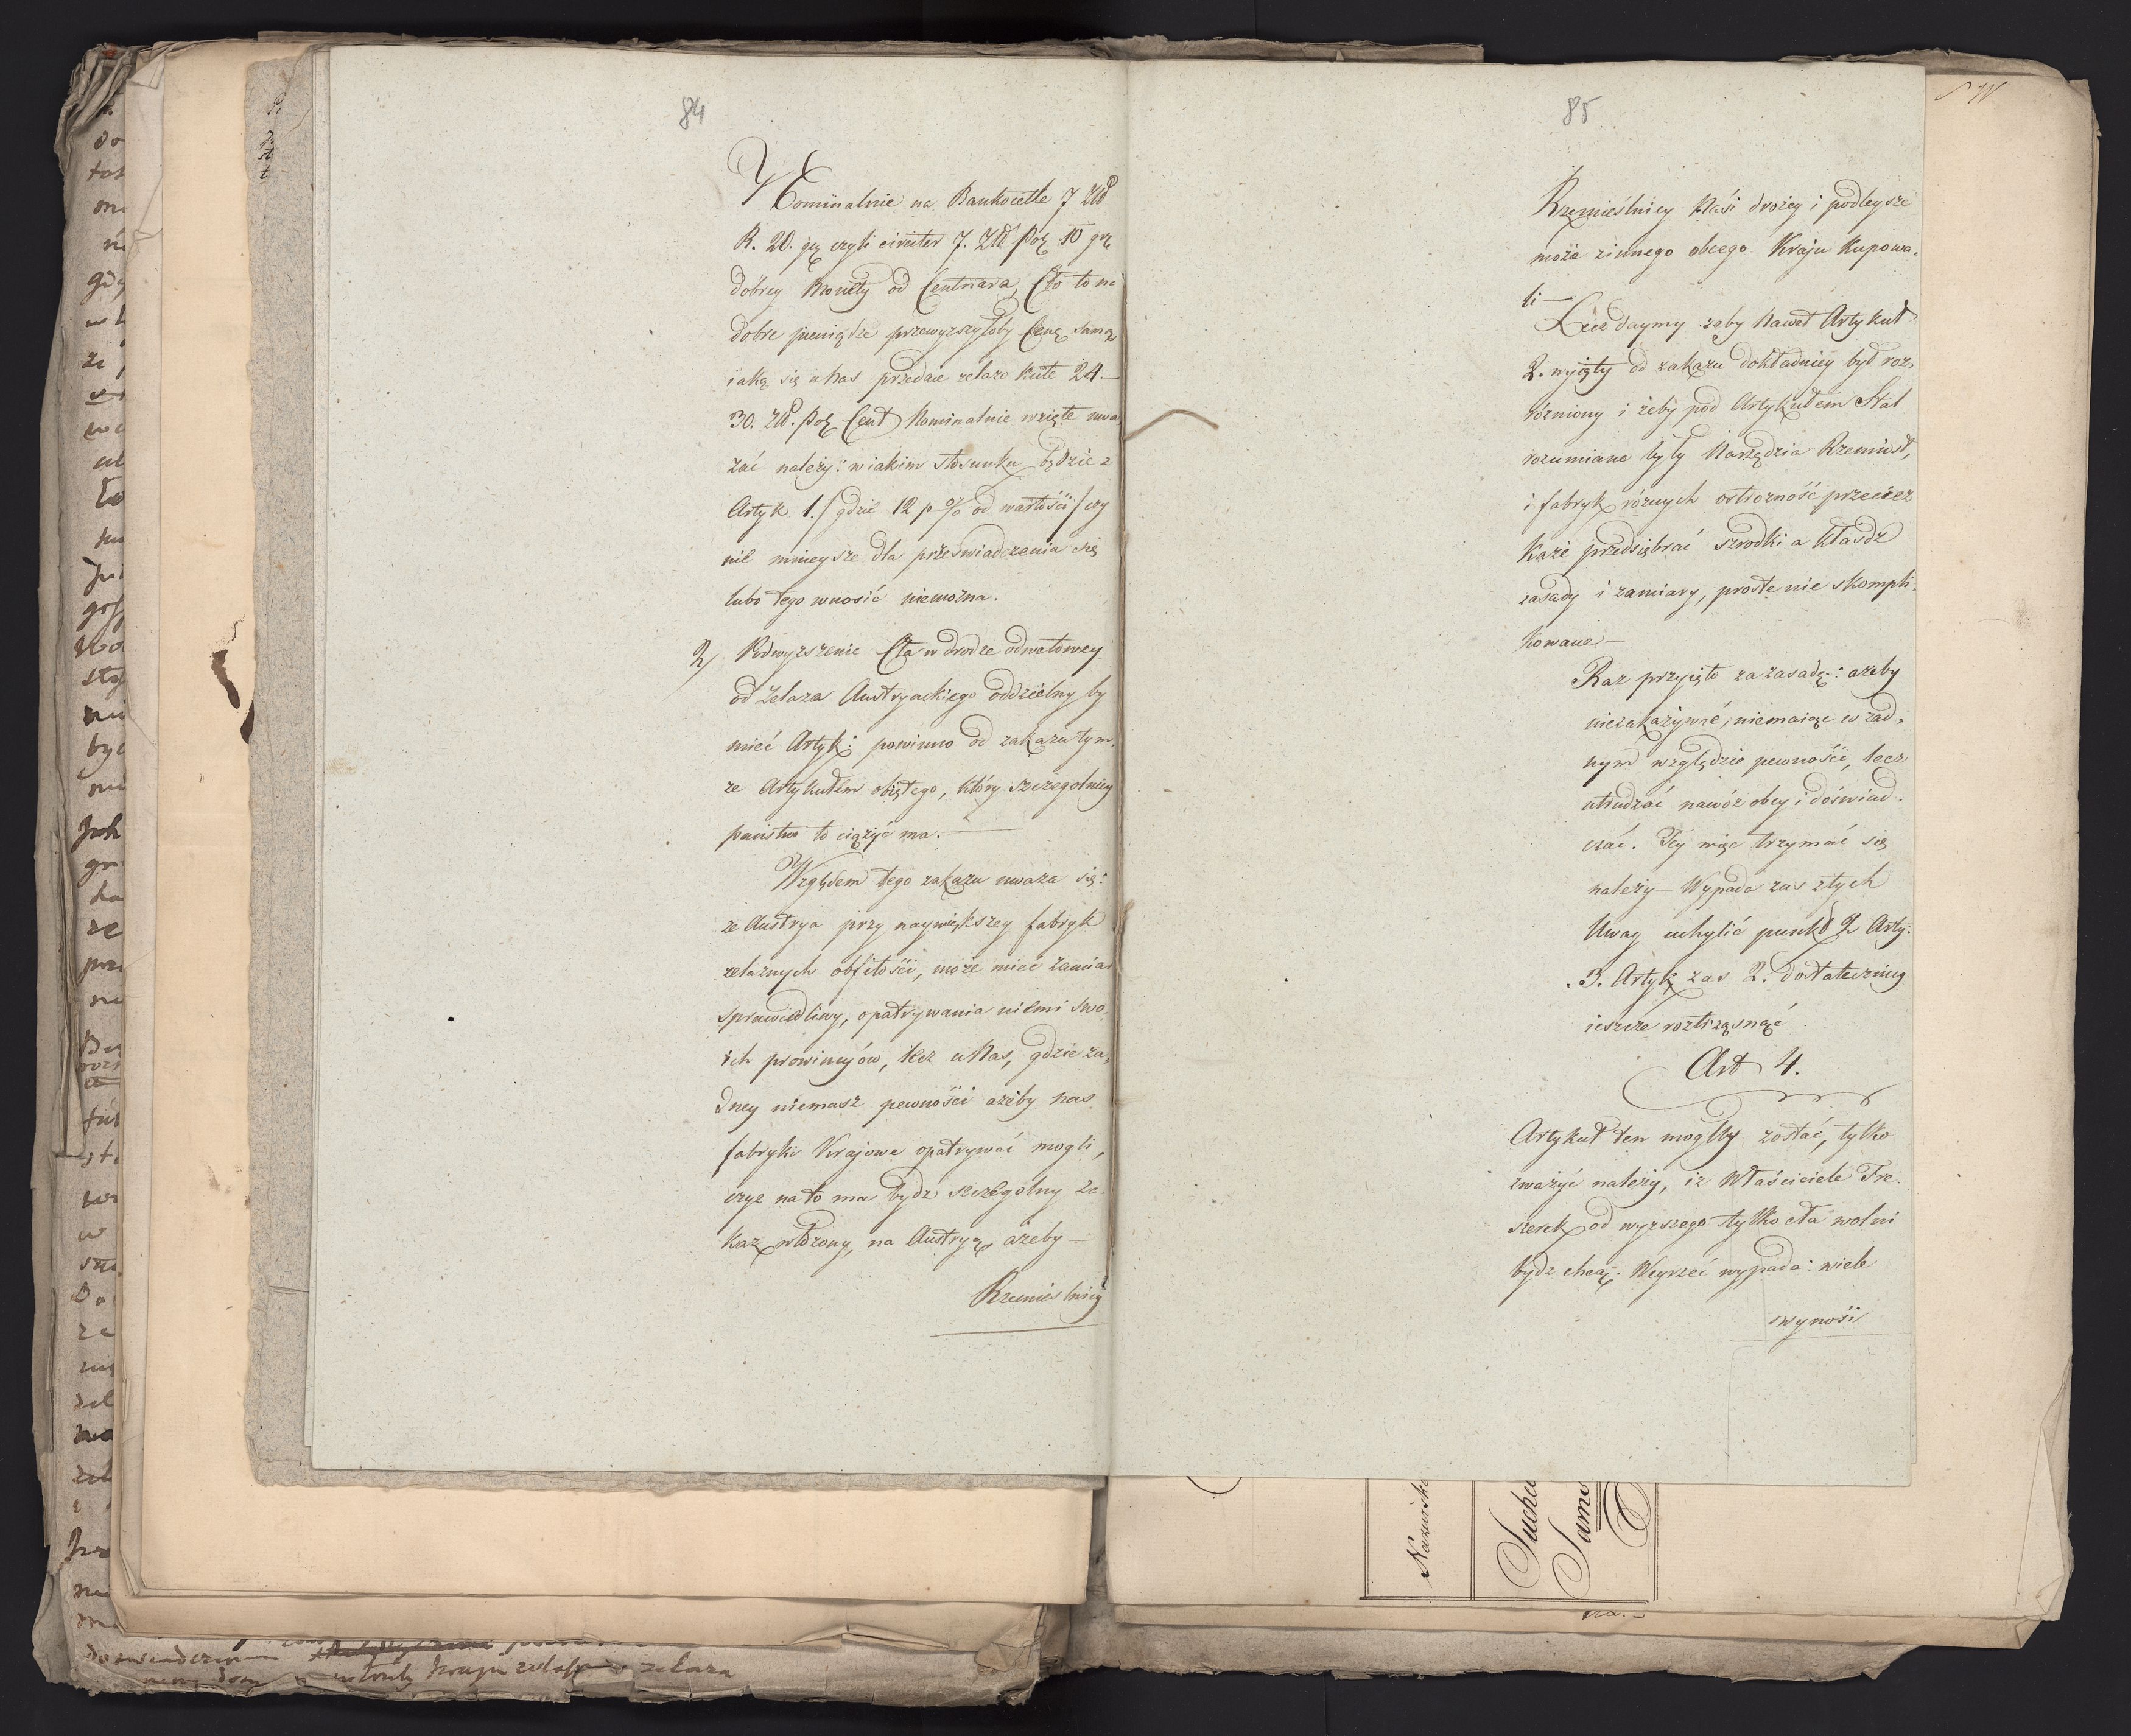 84
Nominalnie na Bankocetle 7 Złł
R. 20. gr czyli circiter 7. Złł Pol 10 gr
dobrey Monety od Centnara, Cło to na
dobre pieniądze przewyższyłoby Cenę samą
iaką się u nas przedaie żelazo kute 24.—
30. Złł. Pol Cent Nominalnie wzięte uwa
żać należy: w iakim stosunku będzie z
Artyk 1. (gdzie 12 p % od wartości) czy
nie mnieysze dla przeswiadczenia się
lubo tego wnosić niemożna.
2) Podwyższenie Cła w drodze odwetowey
od Żelaza Austryackiego oddzielny by
mieć Artyk: powinno od zakazu tym
że Artykułem obiętego, który szczegolniey
państwo to ciążyć ma.—
Względem tego zakazu uważa się:
że Austrya przy naywiększey fabryk
żelaznych obfitości, może mieć zamiar
sprawiedliwy, opatrywania niemi swo
ich prowincyów, lecz u Nas, gdzie ża,
dney niemasz pewności ażeby nas
fabryki Krajowe opatrywać mogli,
czyż na to ma bydz szczególny za
kaz włożony, na Austryą ażeby—
Rzemieślnicy
85
Rzemieślnicy Naśi drożey i podleysze
może z innego obcego Kraju Kupowa-
li—
Lecz daymy żeby Nawet Artykuł
2. wyięty od zakazu dokładniey był roz,
rózniony i żeby pod Artykułem Stal
rozumiane były Narzędzia Rzemiosł,
i fabryk różnych ostrozność przeciez
Każe przedsiębrać szrodki a kłasdz
zasady i zamiary, proste nie skompli
kowane—
Raz przyięto za zasadę: ażeby
niezakazywać, niemaiąc w żad-
nym względzie pewności, lecz
utrudzać nawóz obcy i doświad-
czać. Tey więc trzymać się
należy— Wypada zas z tych
Uwag uchylić punkt 2 Arty:
3. Artyk zas 2. dostateczniey
ieszcze roztrząsnąć.
Art 4.
Artykuł ten mógłby zostać, tylko
zważyć należy, iż Właściciele Fry-
szerek od wyższego tylko cła wolni
bydz chcą. Weyrzeć wypada: wiele
wynośi